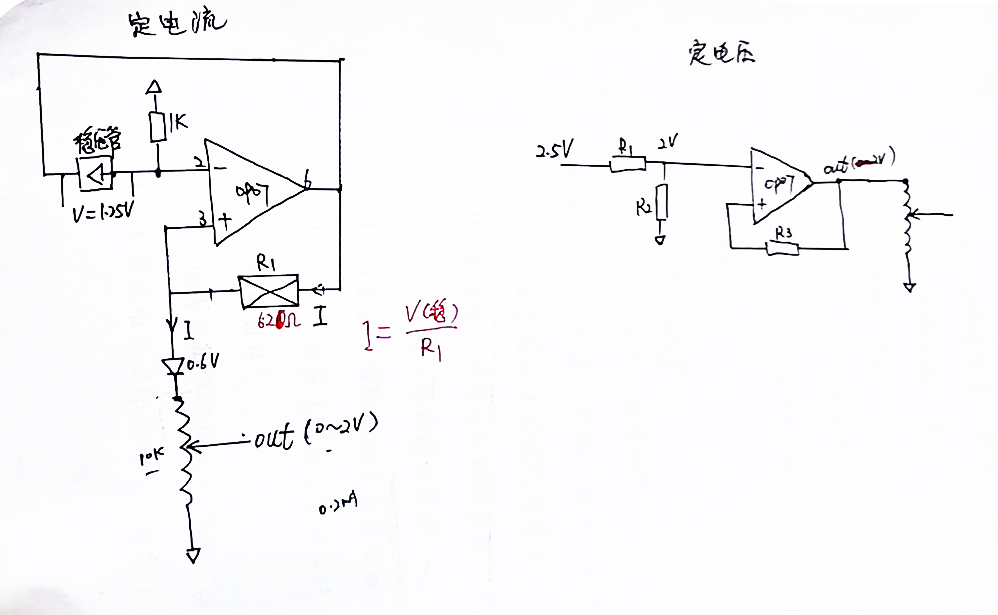 定电流
1K
稳压管
V=1.25V
2
-
OP07
6
3
+
R1
620Ω
I
I
I= V(稳)
R1
0.6V
10K
out (0~2V)
0.2mA
定电压
2.5V
R1
2V
R2
-
OP07
+
out(0~2V)
R3